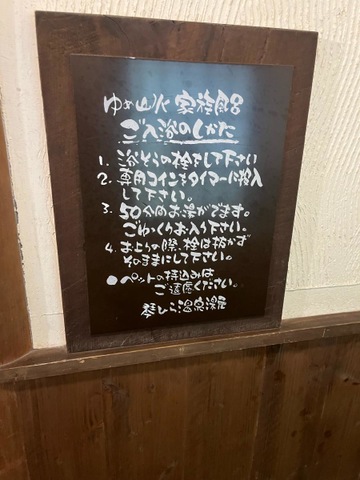 ゆめ山水 家族風呂
ご入浴のしかた
1. 浴そうの栓をして下さい
2. 専用コインをタイマーに投入
して下さい。
3. 50分間お湯がでます。
ごゆっくりお入り下さい。
4. お上りの際、栓は抜かず
そのままにして下さい。
●ペットの持込みは
ご遠慮ください。
琴ひら温泉